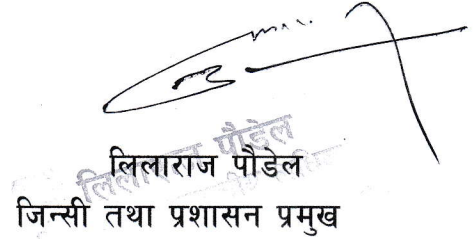 लिलाराज पौडेल
लिलाराज पौडेल
जिन्सी तथा प्रशासन प्रमुख